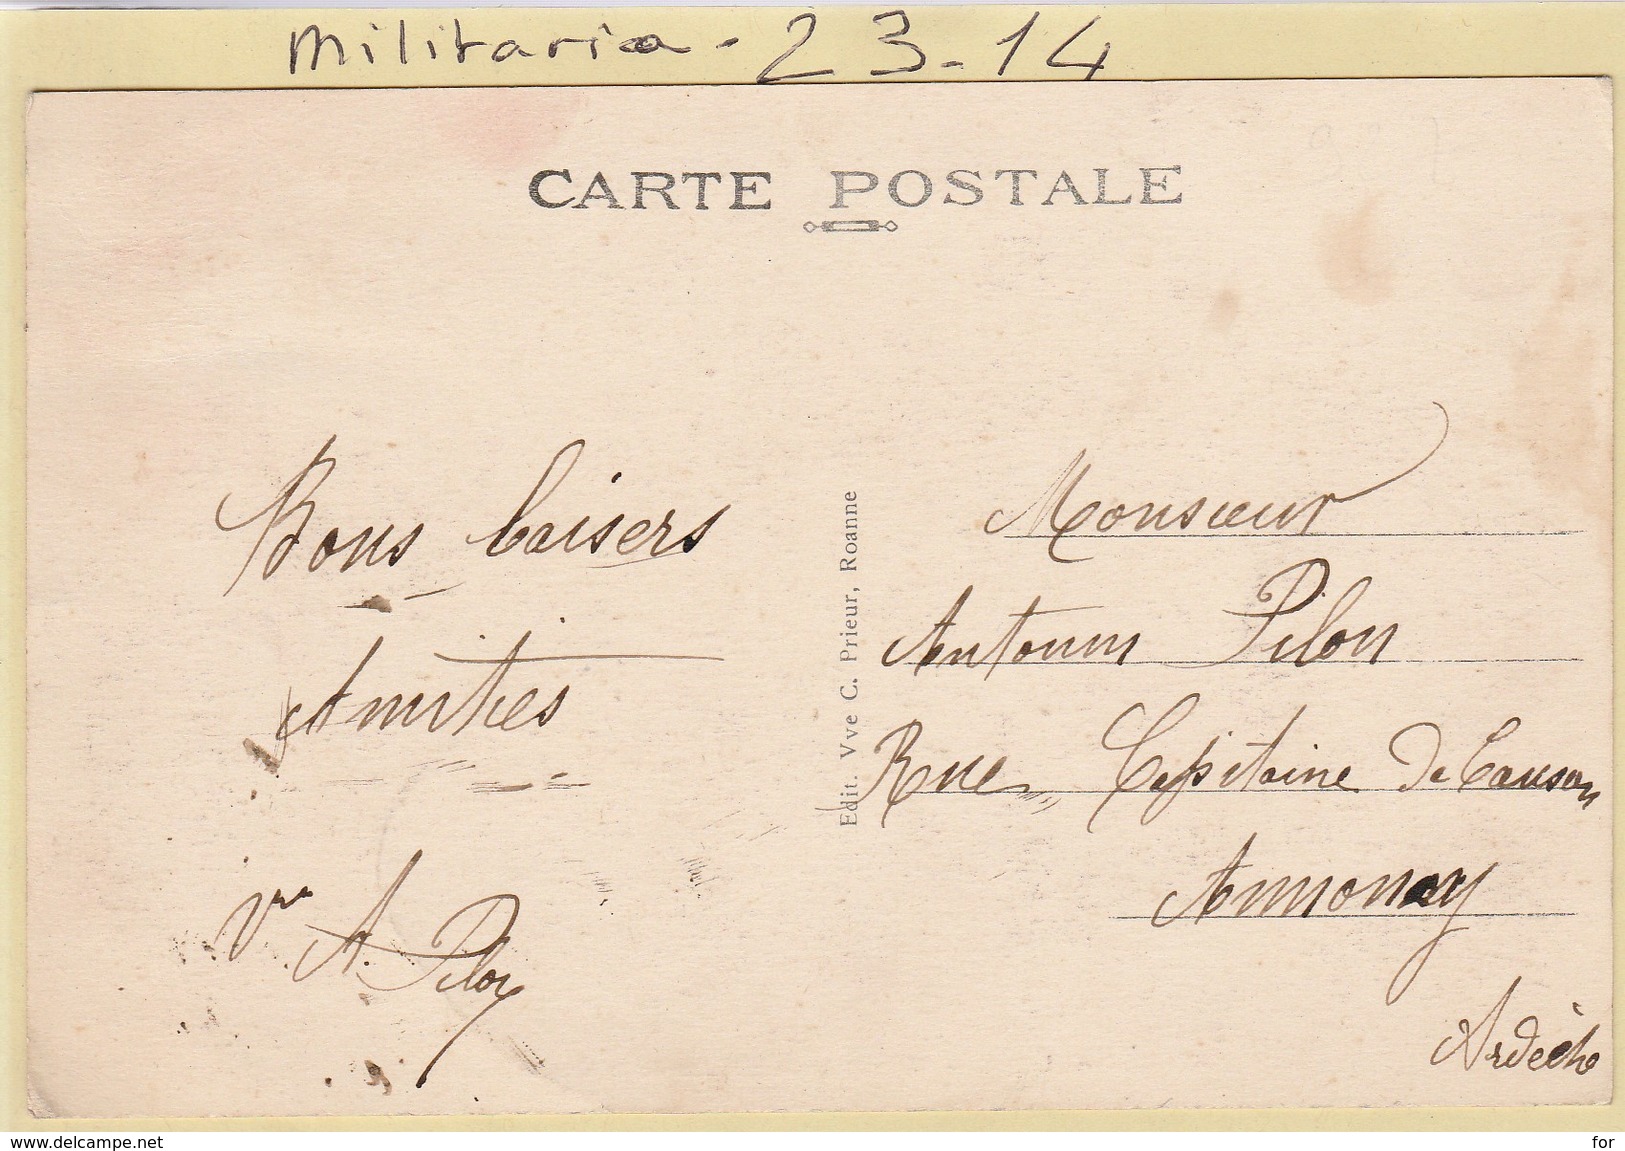 Militaria - 23-14
CARTE POSTALE
Bons baisers
Amitiés
A. Pilon
Edit. Vve C. Prieur, Roanne
Monsieur
Antonin Pilon
Rue Capitaine De Canson
Annonay
Ardèche
www.delcampe.net
for